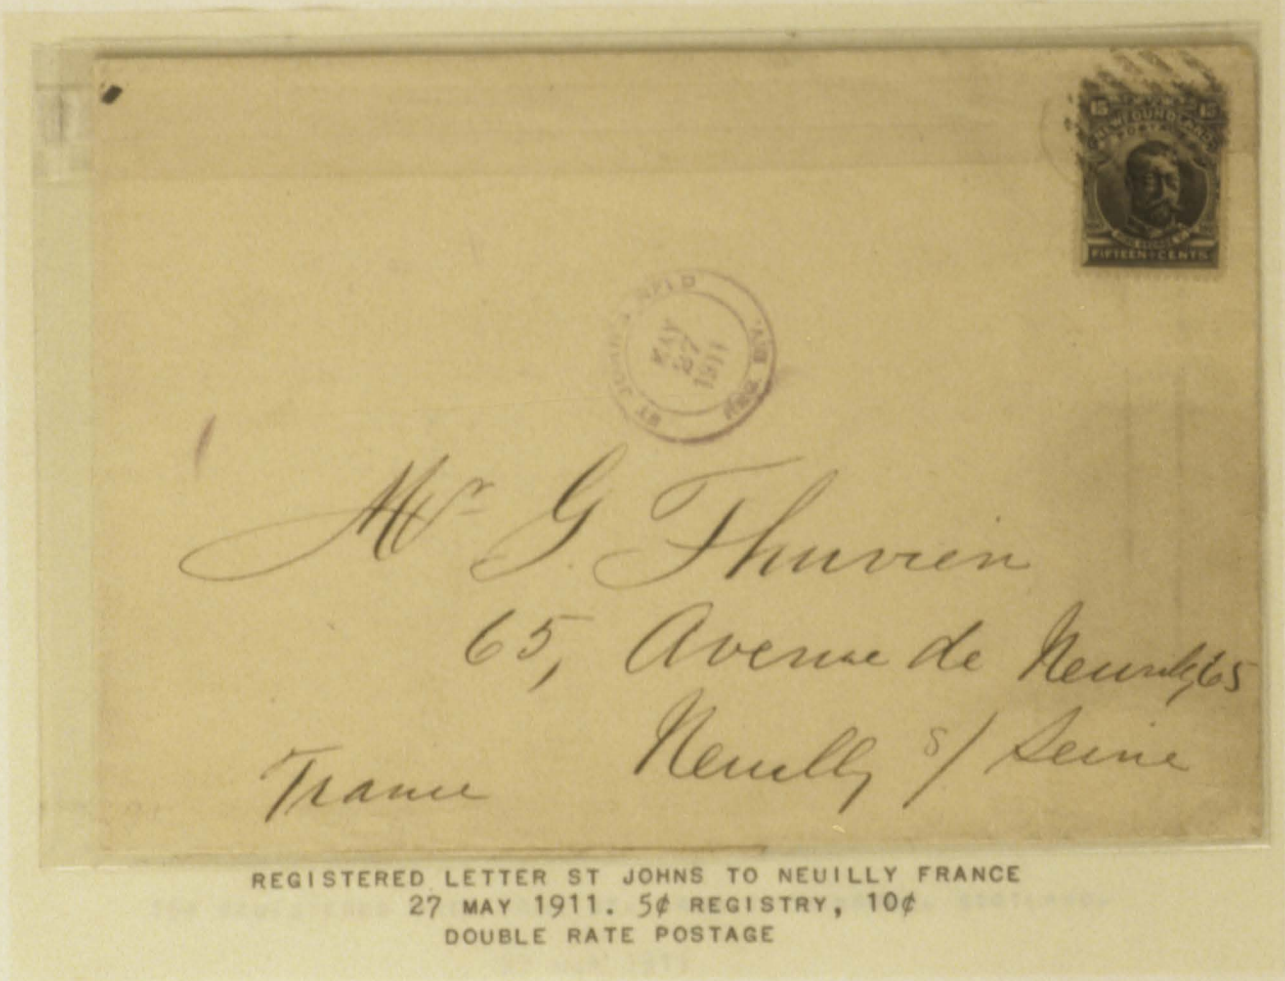 15 15
NEWFOUNDLAND
POSTAGE
KING GEORGE V
FIFTEEN CENTS
ST JOHN'S NFLD
REG.
MAY
27
1911
Mr G Thuvien
65, Avenue de Neuilly, 65
Neuilly s/ Seine
France
REGISTERED LETTER ST JOHNS TO NEUILLY FRANCE
27 MAY 1911. 5¢ REGISTRY, 10¢
DOUBLE RATE POSTAGE